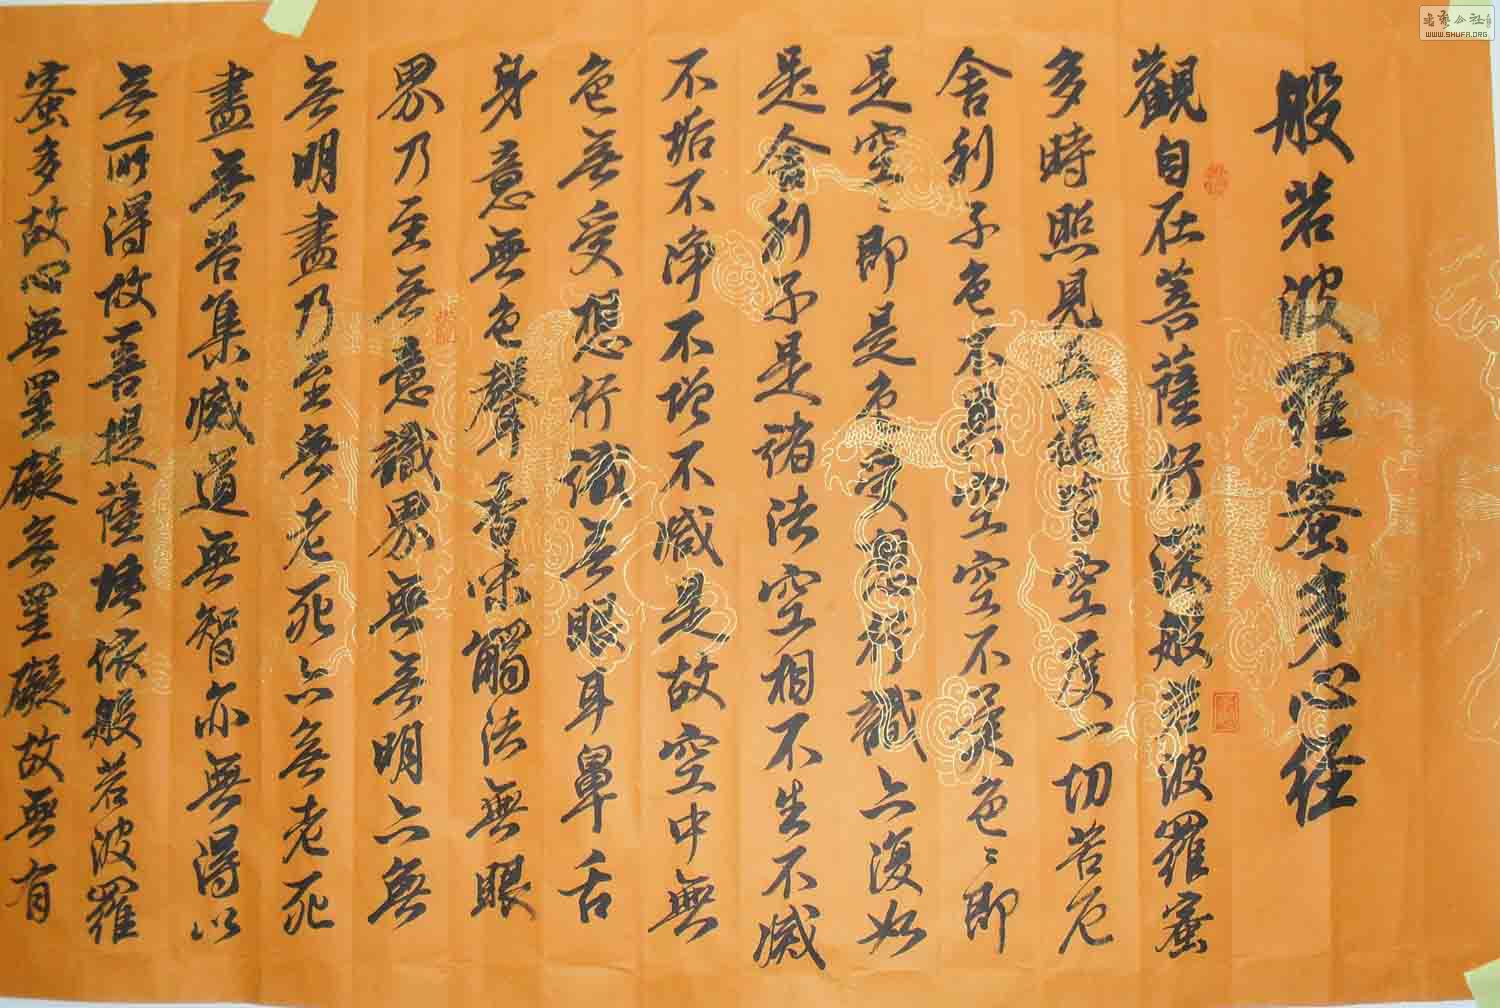 般若波羅蜜多心経
觀自在菩薩行深般若波羅蜜
多時照見五蘊皆空度一切苦厄
舎利子色不異空空不異色〻即
是空〻即是色受想行識亦復如
是舎利子是諸法空相不生不滅
不垢不浄不增不減是故空中無
色無受想行識無眼耳鼻舌
身意無色聲香味觸法無眼
界乃至無意識界無無明亦無
無明盡乃至無老死亦無老死
盡無苦集滅道無智亦無得以
無所得故菩提薩埵依般若波羅
蜜多故心無罣礙無罣礙故無有
WWW.SHUFA.ORG